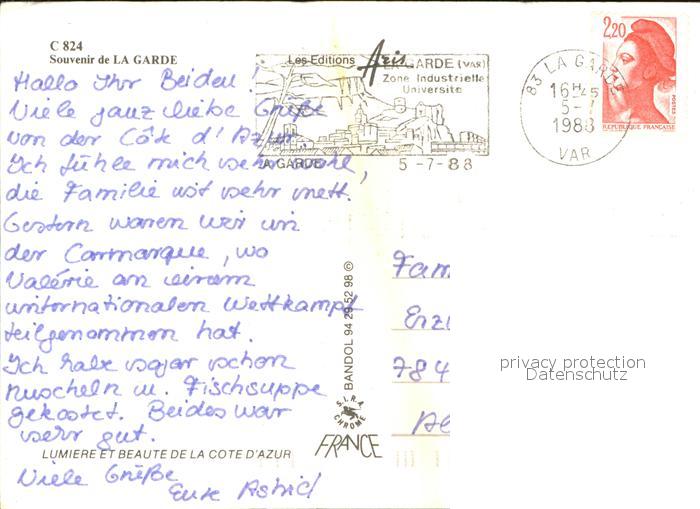 C 824
Souvenir de LA GARDE
Les Editions Aris
LA GARDE (VAR)
Zone Industrielle
Université
LA GARDE 5 -7- 88
83 LA GARDE
16H45
5-7
1988
VAR
2,20
POSTES
REPUBLIQUE FRANÇAISE
Hallo Ihr Beiden!
Viele ganz liebe Grüße
von der Côte d'Azur.
Ich fühle mich sehr wohl,
die Familie ist sehr nett.
Gestern waren wir in
der Carmarque, wo
Valérie an einem
internationalen Wettkampf
teilgenommen hat.
Ich habe sogar schon
Muscheln u. Fischsuppe
gekostet. Beides war
sehr gut.
Viele Grüße
Eure Astrid
BANDOL 94 29 52 98 ©
S.I.R.A. CHROME
FRANCE
LUMIERE ET BEAUTE DE LA COTE D'AZUR
Fam
Erzi
784
Al
privacy protection
Datenschutz